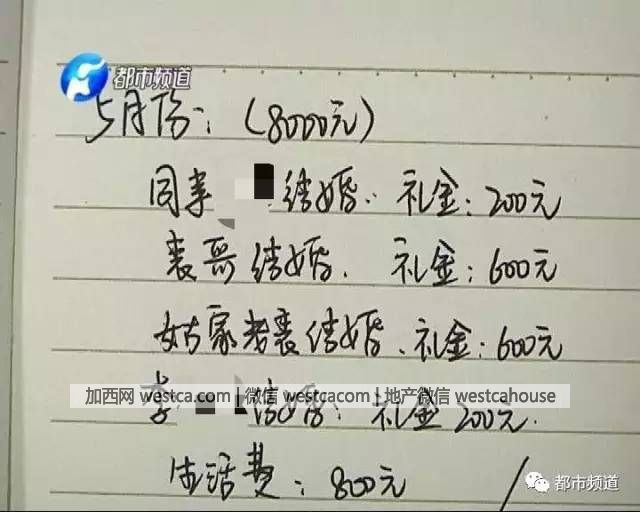 都市频道
5月份：（8000元）
同事 结婚：礼金：200元
表哥结婚、礼金：600元
姑家老表结婚、礼金：600元
加西网 westca.com | 微信 westcacom | 地产微信 westcahouse
李 结婚：礼金 200元.
生活费：800元
都市频道